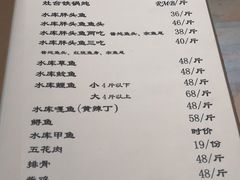 灶台铁锅炖 RMB/斤
水库胖头鱼 36/斤
水库胖头鱼鱼头 46/斤
水库胖头鱼两吃 酱炖鱼头、汆鱼尾 38/斤
水库胖头鱼三吃 40/斤
酱炖鱼头、红烧鱼身、汆鱼尾
水库草鱼 48/斤
水库鲶鱼 48/斤
水库鲤鱼 小 4斤以下 48/斤
大 4斤以上 68/斤
水库嘎鱼(黄辣丁) 48/斤
鲟鱼 58/斤
水库甲鱼 时价
五花肉 19/份
排骨 48/斤
48/斤